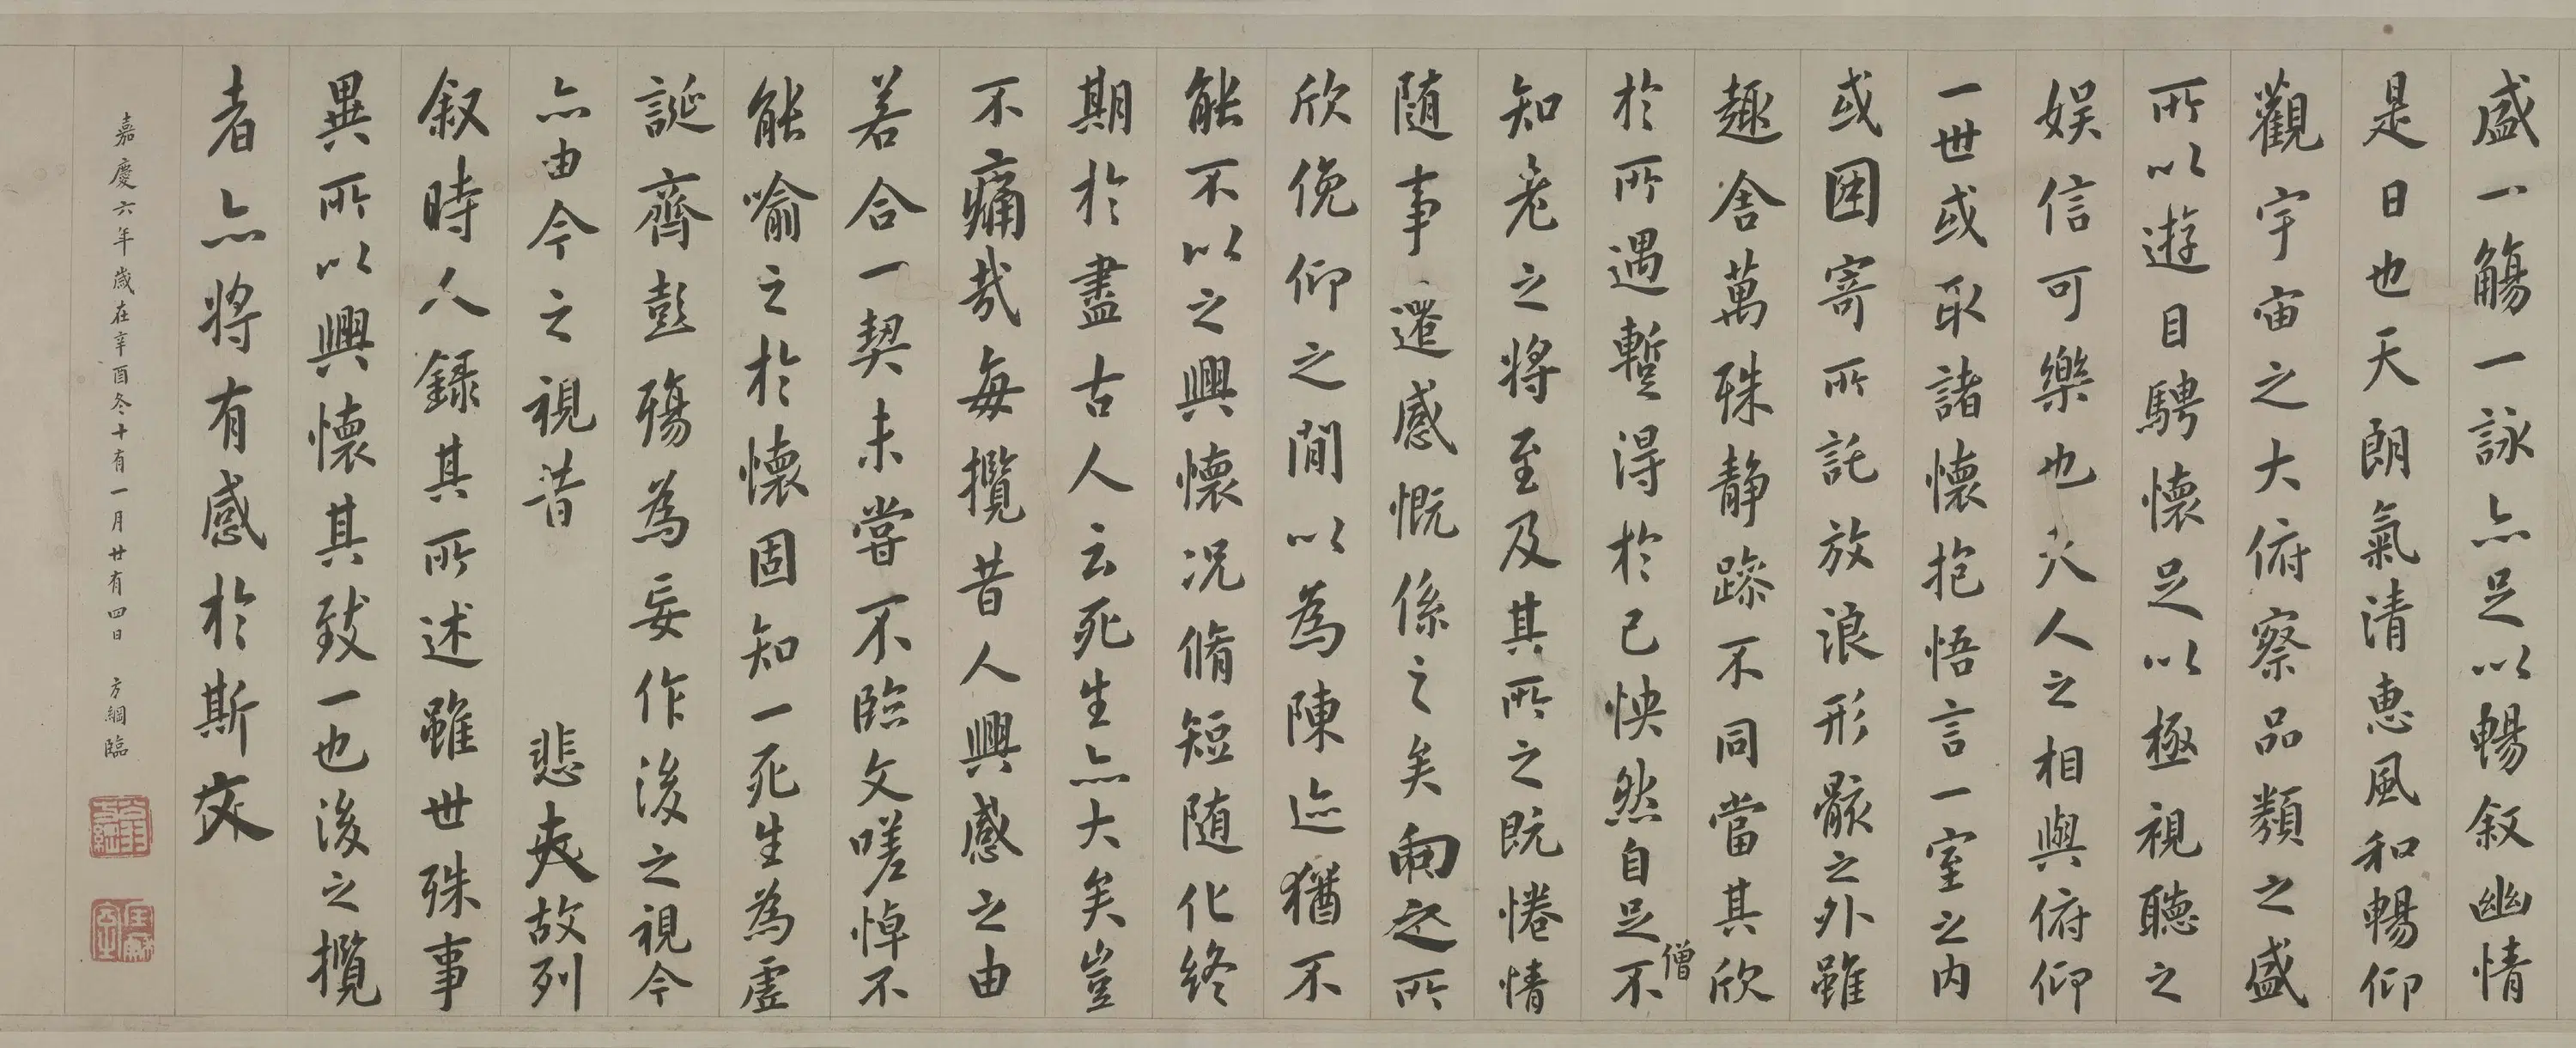 盛一觴一詠亦足以暢叙幽情
是日也天朗氣清惠風和暢仰
觀宇宙之大俯察品類之盛
所以遊目騁懷足以極視聽之
娱信可樂也夫人之相與俯仰
一世或取諸懷抱悟言一室之内
或因寄所託放浪形骸之外雖
趣舍萬殊静躁不同當其欣
於所遇暫得於己怏然自足不
僧
知老之將至及其所之既惓情
随事遷感慨係之矣向之所
欣俛仰之閒以為陳迹猶不
能不以之興懷况脩短随化終
期於盡古人云死生亦大矣豈
不痛哉每攬昔人興感之由
若合一契未嘗不臨文嗟悼不
能喻之於懷固知一死生為虚
誕齊彭殤為妄作後之視今
亦由今之視昔 悲夫故列
叙時人録其所述雖世殊事
異所以興懷其致一也後之攬
者亦將有感於斯文
嘉慶六年歲在辛酉冬十有一月廿有四日 方綱臨
翁方綱